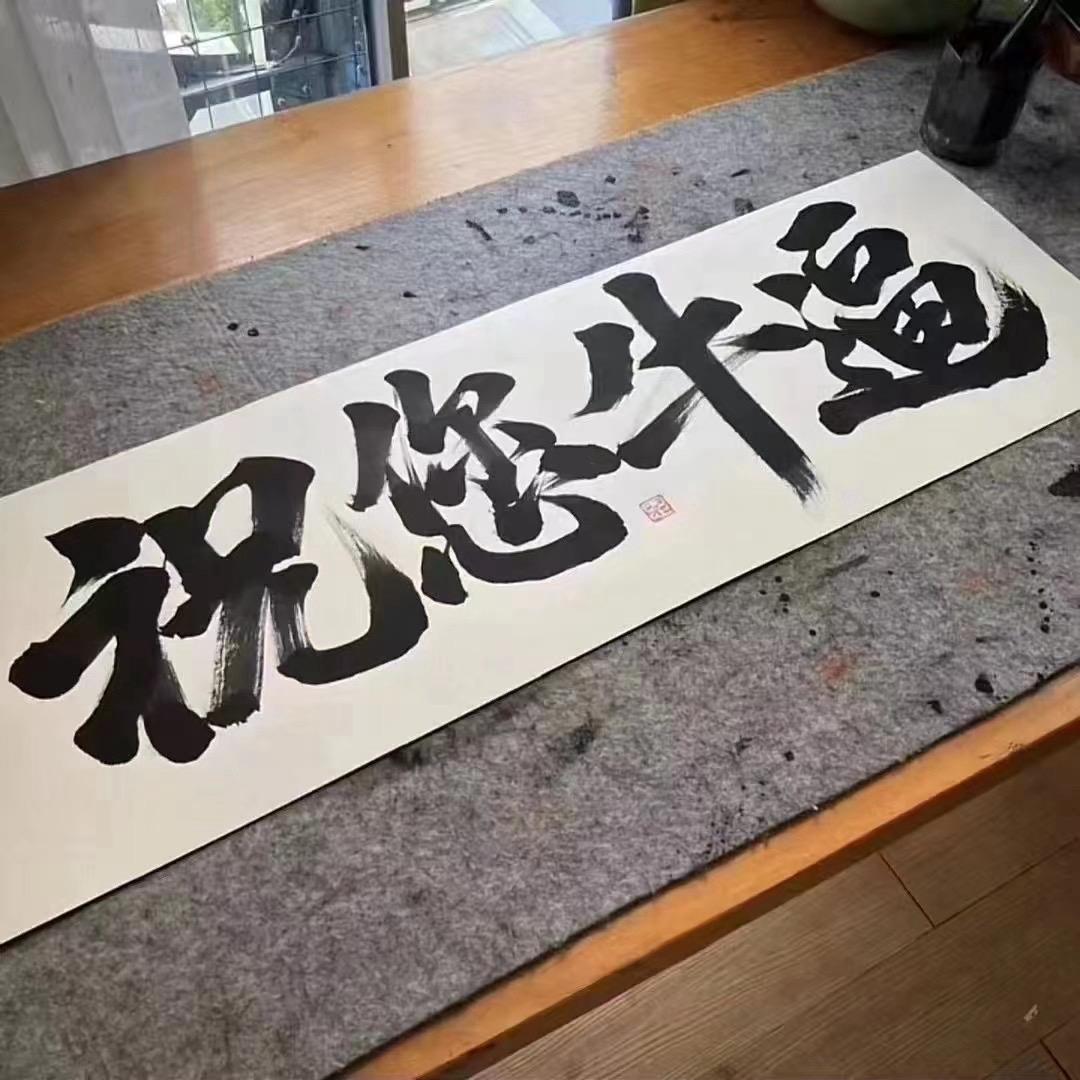 祝您牛逼